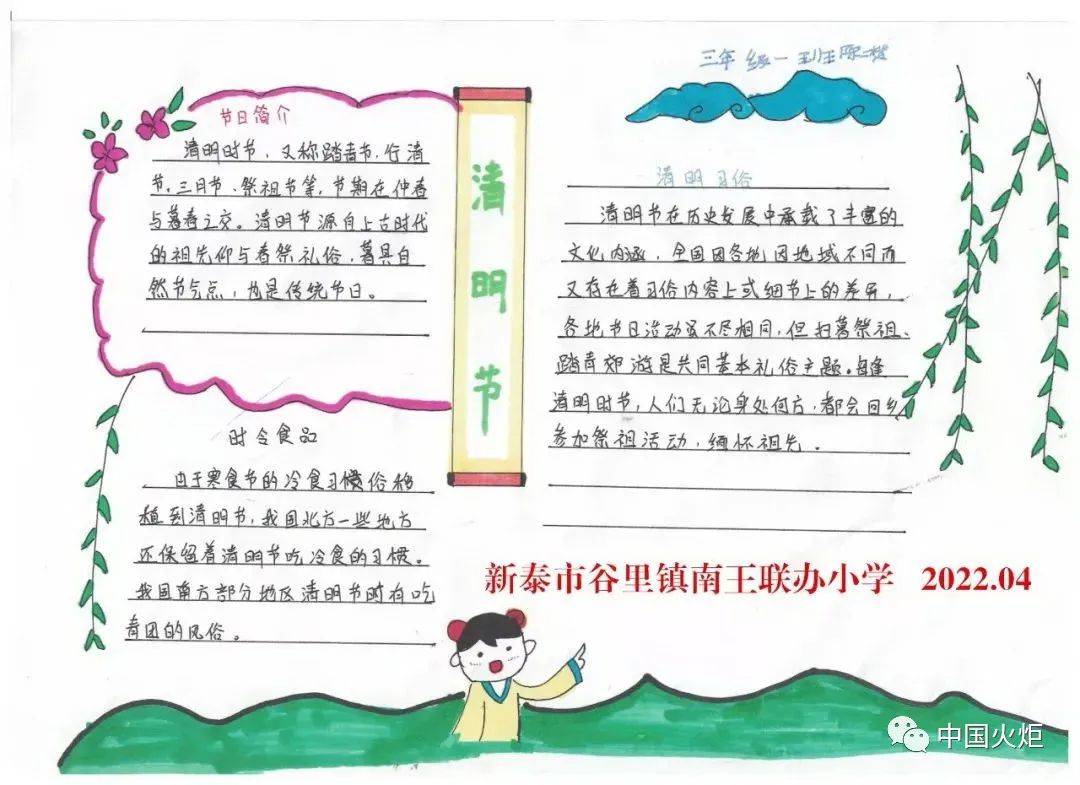 三年级一班陈
节日简介
清明时节，又称踏青节，行清
节，三月节、祭祖节等，节期在仲春
与暮春之交。清明节源自上古时代
的祖先仰与春祭礼俗，暮具自
然节气点，也是传统节日。
时令食品
由于寒食节的冷食习惯俗移
植到清明节，我国北方一些地方
还保留着清明节吃冷食的习惯。
我国南方部分地区清明节时有吃
青团的风俗。
清明节
清明习俗
清明节在历史发展中承载了丰富的
文化内涵，全国因各地因地域不同而
又存在着习俗内容上或细节上的差异，
各地节日活动虽不尽相同，但扫墓祭祖、
踏青郊游是共同基本礼俗主题。每逢
清明时节，人们无论身处何方，都会回乡
参加祭祖活动，缅怀祖先。
新泰市谷里镇南王联办小学 2022.04
中国火炬